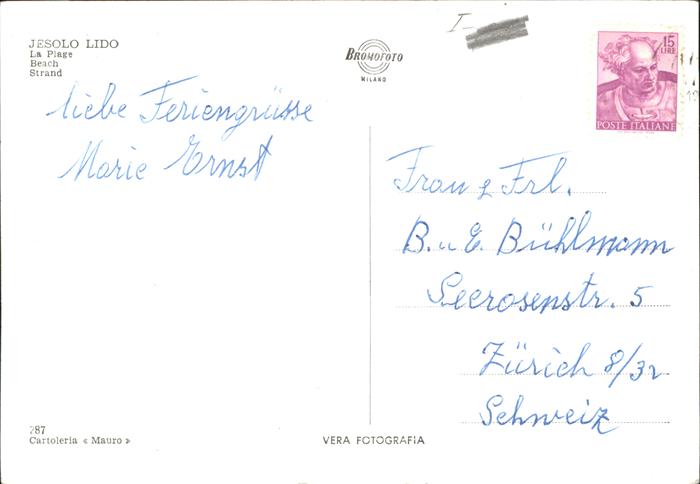 JESOLO LIDO
La Plage
Beach
Strand
BROMOFOTO
MILANO
I-
15
LIRE
POSTE ITALIANE
liebe Feriengrüsse
Marie Ernst
Frau & Frl.
B. u E. Bühlmann
Seerosenstr. 5
Zürich 8/32
Schweiz
287
Cartoleria « Mauro »
VERA FOTOGRAFIA